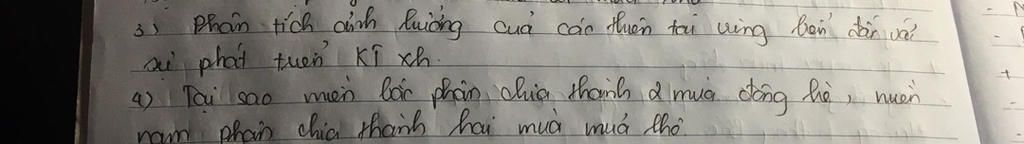 3) Phân tích ảnh hưởng của các thiên tai vùng biển đến với
sự phát triển KT xh.
4) Tại sao miền bắc phân chia thành 2 mùa đông hè, miền
nam phân chia thành hai mùa mưa khô